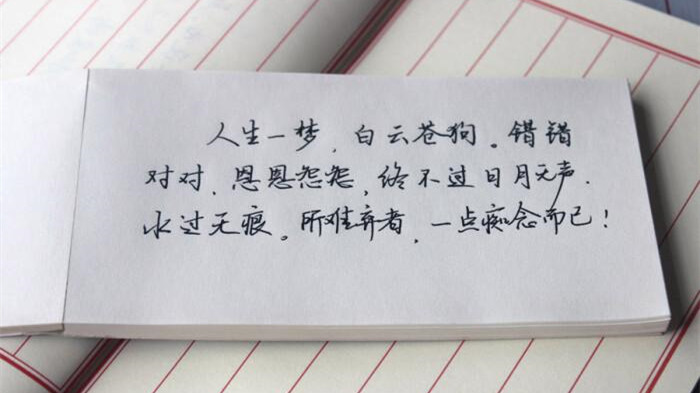 人生一梦，白云苍狗。错错
对对，恩恩怨怨，终不过日月无声，
水过无痕。所难弃者，一点痴念而已！